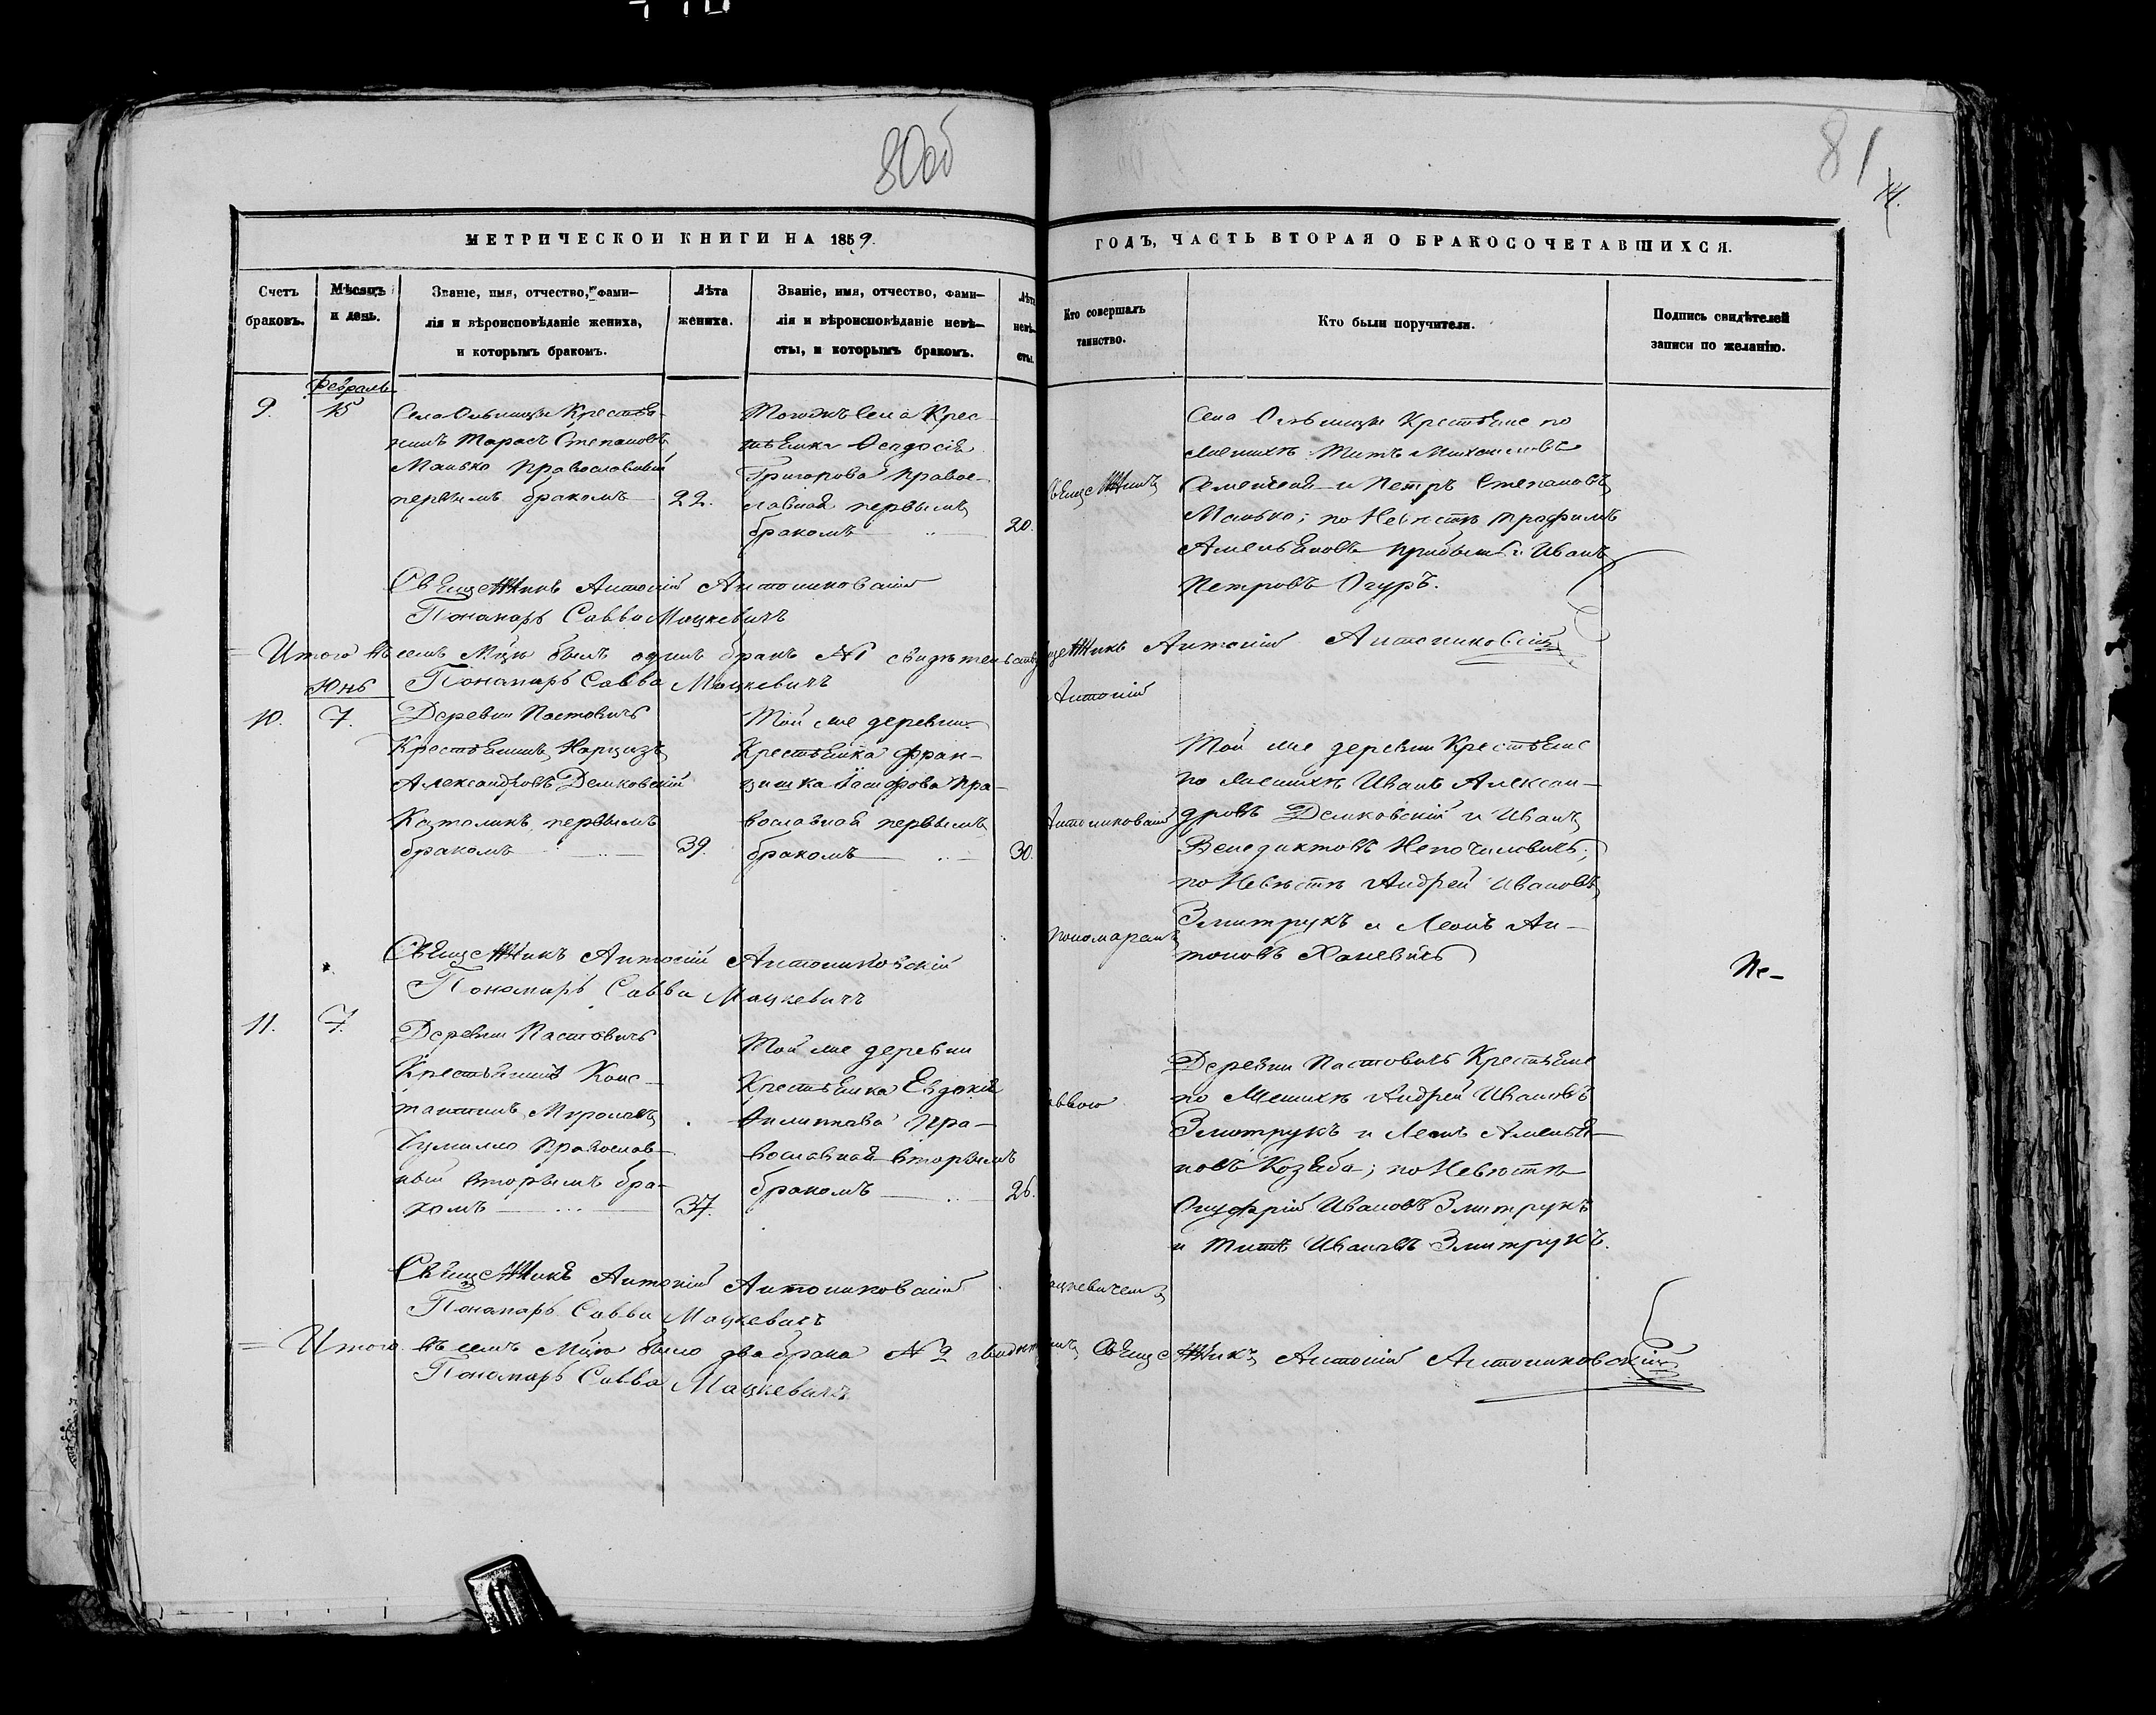 80об
81
14.
МЕТРИЧЕСКОЙ КНИГИ НА 1859.
ГОДЪ, ЧАСТЬ ВТОРАЯ О БРАКОСОЧЕТАВШИХСЯ.
Счетъ
браковъ.
Мѣсяцъ
и день.
Званіе, имя, отчество, фами-
лія и вѣроисповѣданіе жениха,
и которымъ бракомъ.
Лѣта
жениха.
Званіе, имя, отчество, фами-
лія и вѣроисповѣданіе невѣ-
сты, и которымъ бракомъ.
Лѣта
невѣ-
сты.
Кто совершалъ
таинство.
Кто были поручители.
Подпись свидѣтелей
записи по желанію.
Февраль
9.
15
Села Ольницы Крестья-
нинъ Тарасъ Степановъ
Манько православный
первымъ бракомъ
22.
Тогожъ Села Крес-
тьянка Феодосія
Григорова правос-
лавная первымъ
бракомъ
20.
Села Ольницы Крестьяне по
Женихѣ Титъ Михайловъ
и Петръ Степановъ
Манько; по Невѣстѣ Трофимъ
Амельяновъ и Иванъ
Петровъ Огуръ.
Священникъ Антоній Антониковскій
Пономарь Савва Мацкевичъ
Итого въ семъ М-цѣ былъ одинъ бракъ №1 Антоній Антониковскій
Пономарь Савва Мацкевичъ
Антоній
Юнь
10.
7.
Деревни Пастовичъ
Крестьянинъ Нарцизъ
Александровъ Демковскій
Католикъ, первымъ
бракомъ
39.
Той же деревни
Крестьянка Фран-
цишка Іосифова пра-
вославная первымъ
бракомъ
30.
Антониковскій
Той же деревни Крестьяне
по Женихѣ Иванъ Алексан-
дровъ Демковскій и Иванъ
Венедиктовъ
по Невѣстѣ Андрей Ивановъ
Змитрукъ и Леонъ Ан-
тоновъ Ханевичъ
Пономаремъ
Священникъ Антоній Антониковскій
Пономарь Савва Мацкевичъ
Не-
11.
7.
Деревни Пастовичъ
Крестьянинъ Конс-
тантинъ Мироновъ
Чумилло Православ-
ный вторымъ бра-
комъ
37.
Той же деревни
Крестьянка Евдокія
Филипова пра-
вославная вторымъ
бракомъ
26.
Саввою
Деревни Пастовичъ Крестьяне
по Женихѣ Андрей Ивановъ
Змитрукъ и Леонъ Амелья-
новъ Козяба; по Невѣстѣ
Онуфрій Ивановъ Змитрукъ
и Титъ Ивановъ Змитрукъ.
Мацкевичемъ
Священникъ Антоній Антониковскій
Пономарь Савва Мацкевичъ
Итого въ семъ М-цѣ было два брака №2 Священникъ Антоній Антониковскій
Пономарь Савва Мацкевичъ